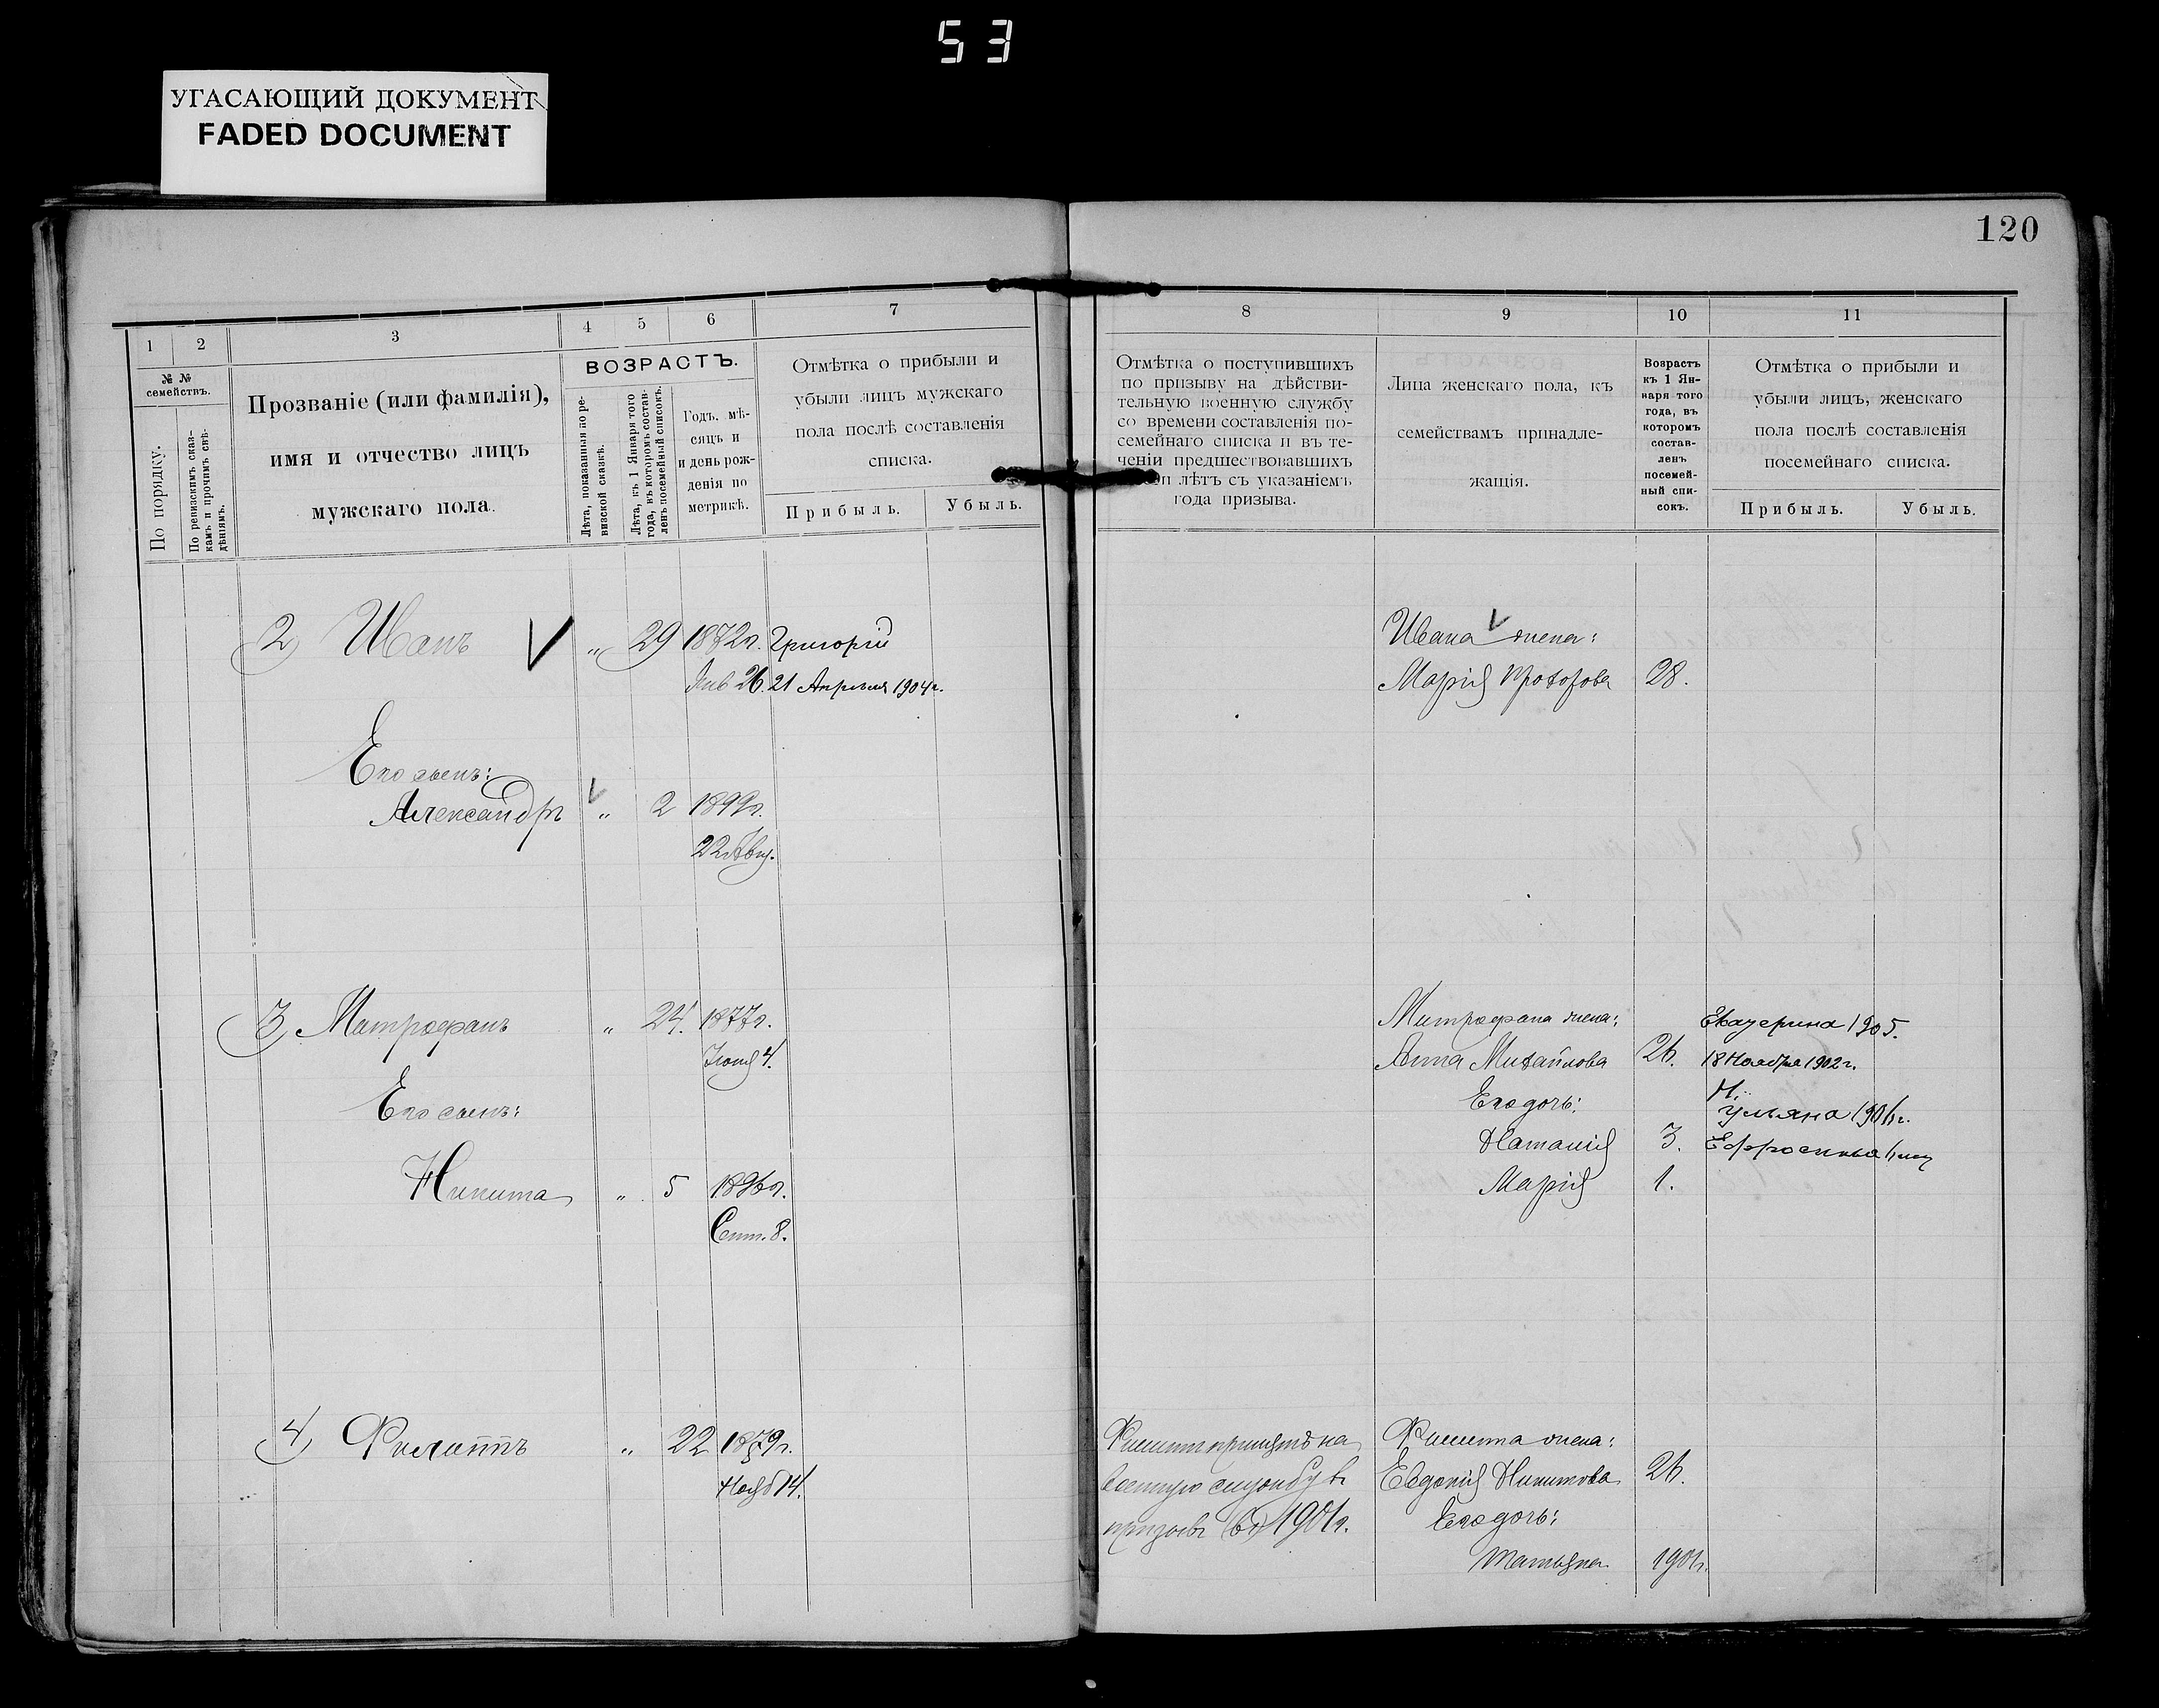 53
УГАСАЮЩИЙ ДОКУМЕНТ
FADED DOCUMENT
120
1 2 3 4 5 6 7
№ №
семействъ.
По порядку.
По ревизскимъ сказ-
камъ и прочимъ свѣ-
дѣніямъ.
Прозваніе (или фамилія),
имя и отчество лицъ
мужскаго пола.
ВОЗРАСТЪ.
Лѣта, показанныя по ре-
визской сказкѣ.
Лѣта, къ 1 Января того
года, въ которомъ состав-
ленъ посемейный списокъ.
Годъ, мѣ-
сяцъ и
и день рож-
денія по
метрикѣ.
Отмѣтка о прибыли и
убыли лицъ мужскаго
пола послѣ составленія
списка.
Прибыль. Убыль.
2) Иванъ " 29 1872г. Григорій
Янв 26. 21 Апрѣля 1904г.
Его сынъ:
Александръ " 2 1899г.
22 Авг.
3) Митрофанъ " 24. 1877г.
Іюня 4.
Его сынъ:
Никита " 5 1896г.
Сент. 8.
4) Филиппъ " 22 1879г.
Нояб 14.
8 9 10 11
Отмѣтка о поступившихъ
по призыву на дѣйстви-
тельную военную службу
со времени составленія по-
семейнаго списка и въ те-
ченіи предшествовавшихъ
лѣтъ съ указаніемъ
года призыва.
Лица женскаго пола, къ
семействамъ принадле-
жащія.
Возрастъ
къ 1 Ян-
варя того
года, въ
которомъ
состав-
ленъ
посемей-
ный спи-
сокъ.
Отмѣтка о прибыли и
убыли лицъ, женскаго
пола послѣ составленія
посемейнаго списка.
Прибыль. Убыль.
Ивана жена:
Марія Прохорова 28.
Митрофана жена: Екатерина 1905.
Анна Михайлова 26. 18 Ноября 1902г.
Его дочь:
Ульяна 1906г.
Наталія 3. Ефросинья
Марія 1.
Филиппъ принятъ на Филиппа жена:
военную службу въ Евдокія Никитова 26.
призывъ (въ) 1901г. Его дочь:
Татьяна 1901г.